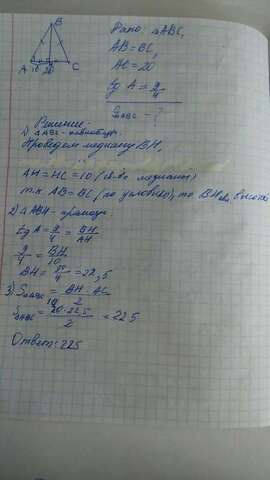 B
A 10 20 C
Дано: △ABC,
AB=BC,
AC=20
tg A = 9/4
S△ABC - ?
Решение:
1) △ABC - равнобедр.
Проведем медиану BH,
AH=HC=10 (св-во медианы)
т.к. AB=BC (по условию), то BH явл. высота
2) △ABH - прямоуг.
tg A = 9/4 = BH/AH
9/4 = BH/10
BH = /4 = 22,5
3) S△ABC = BH · AC / 2
S△ABC = 20·22,5 / 2 = 225
Ответ: 225